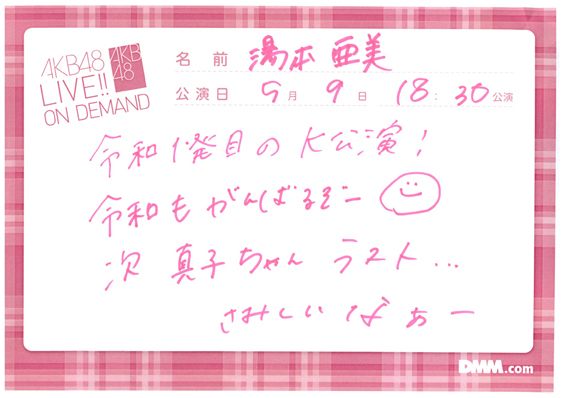 AKB48
LIVE!!
ON DEMAND
AKB
48
名前 湯本亜美
公演日 5月9日 18:30公演
令和1発目のK公演!
令和もがんばるぞー
次 真子ちゃん ラスト...
さみしいなぁー
DMM.com